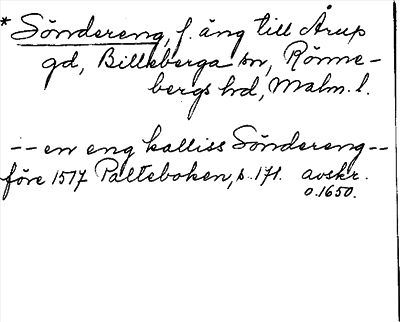 * Söndereng, f. äng till Årup
gd, Billeberga sn, Rönne-
bergs hd, Malm. l.
-- en eng kalliss Söndereng --
före 1517 Palteboken, s. 171. avskr.
o. 1650.